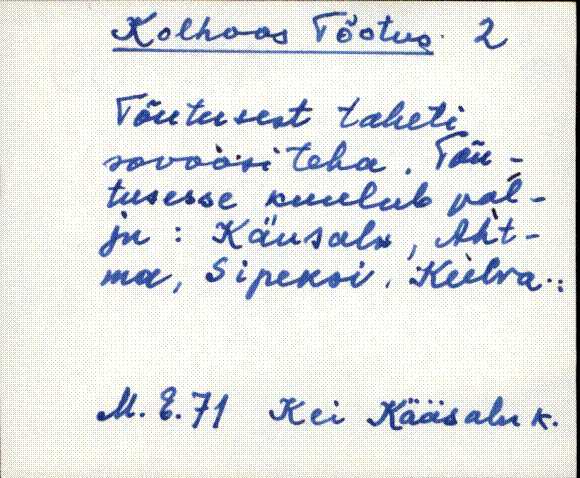 Kolhoos Tõotus 2
Tõutusest taheti
sovoosi teha. Tõu-
tusesse kuulub pal-
ju : Käusalu, Aht-
ma, Sipeksi, Keilva..
M. E. 71 Kei Kääsalu k.